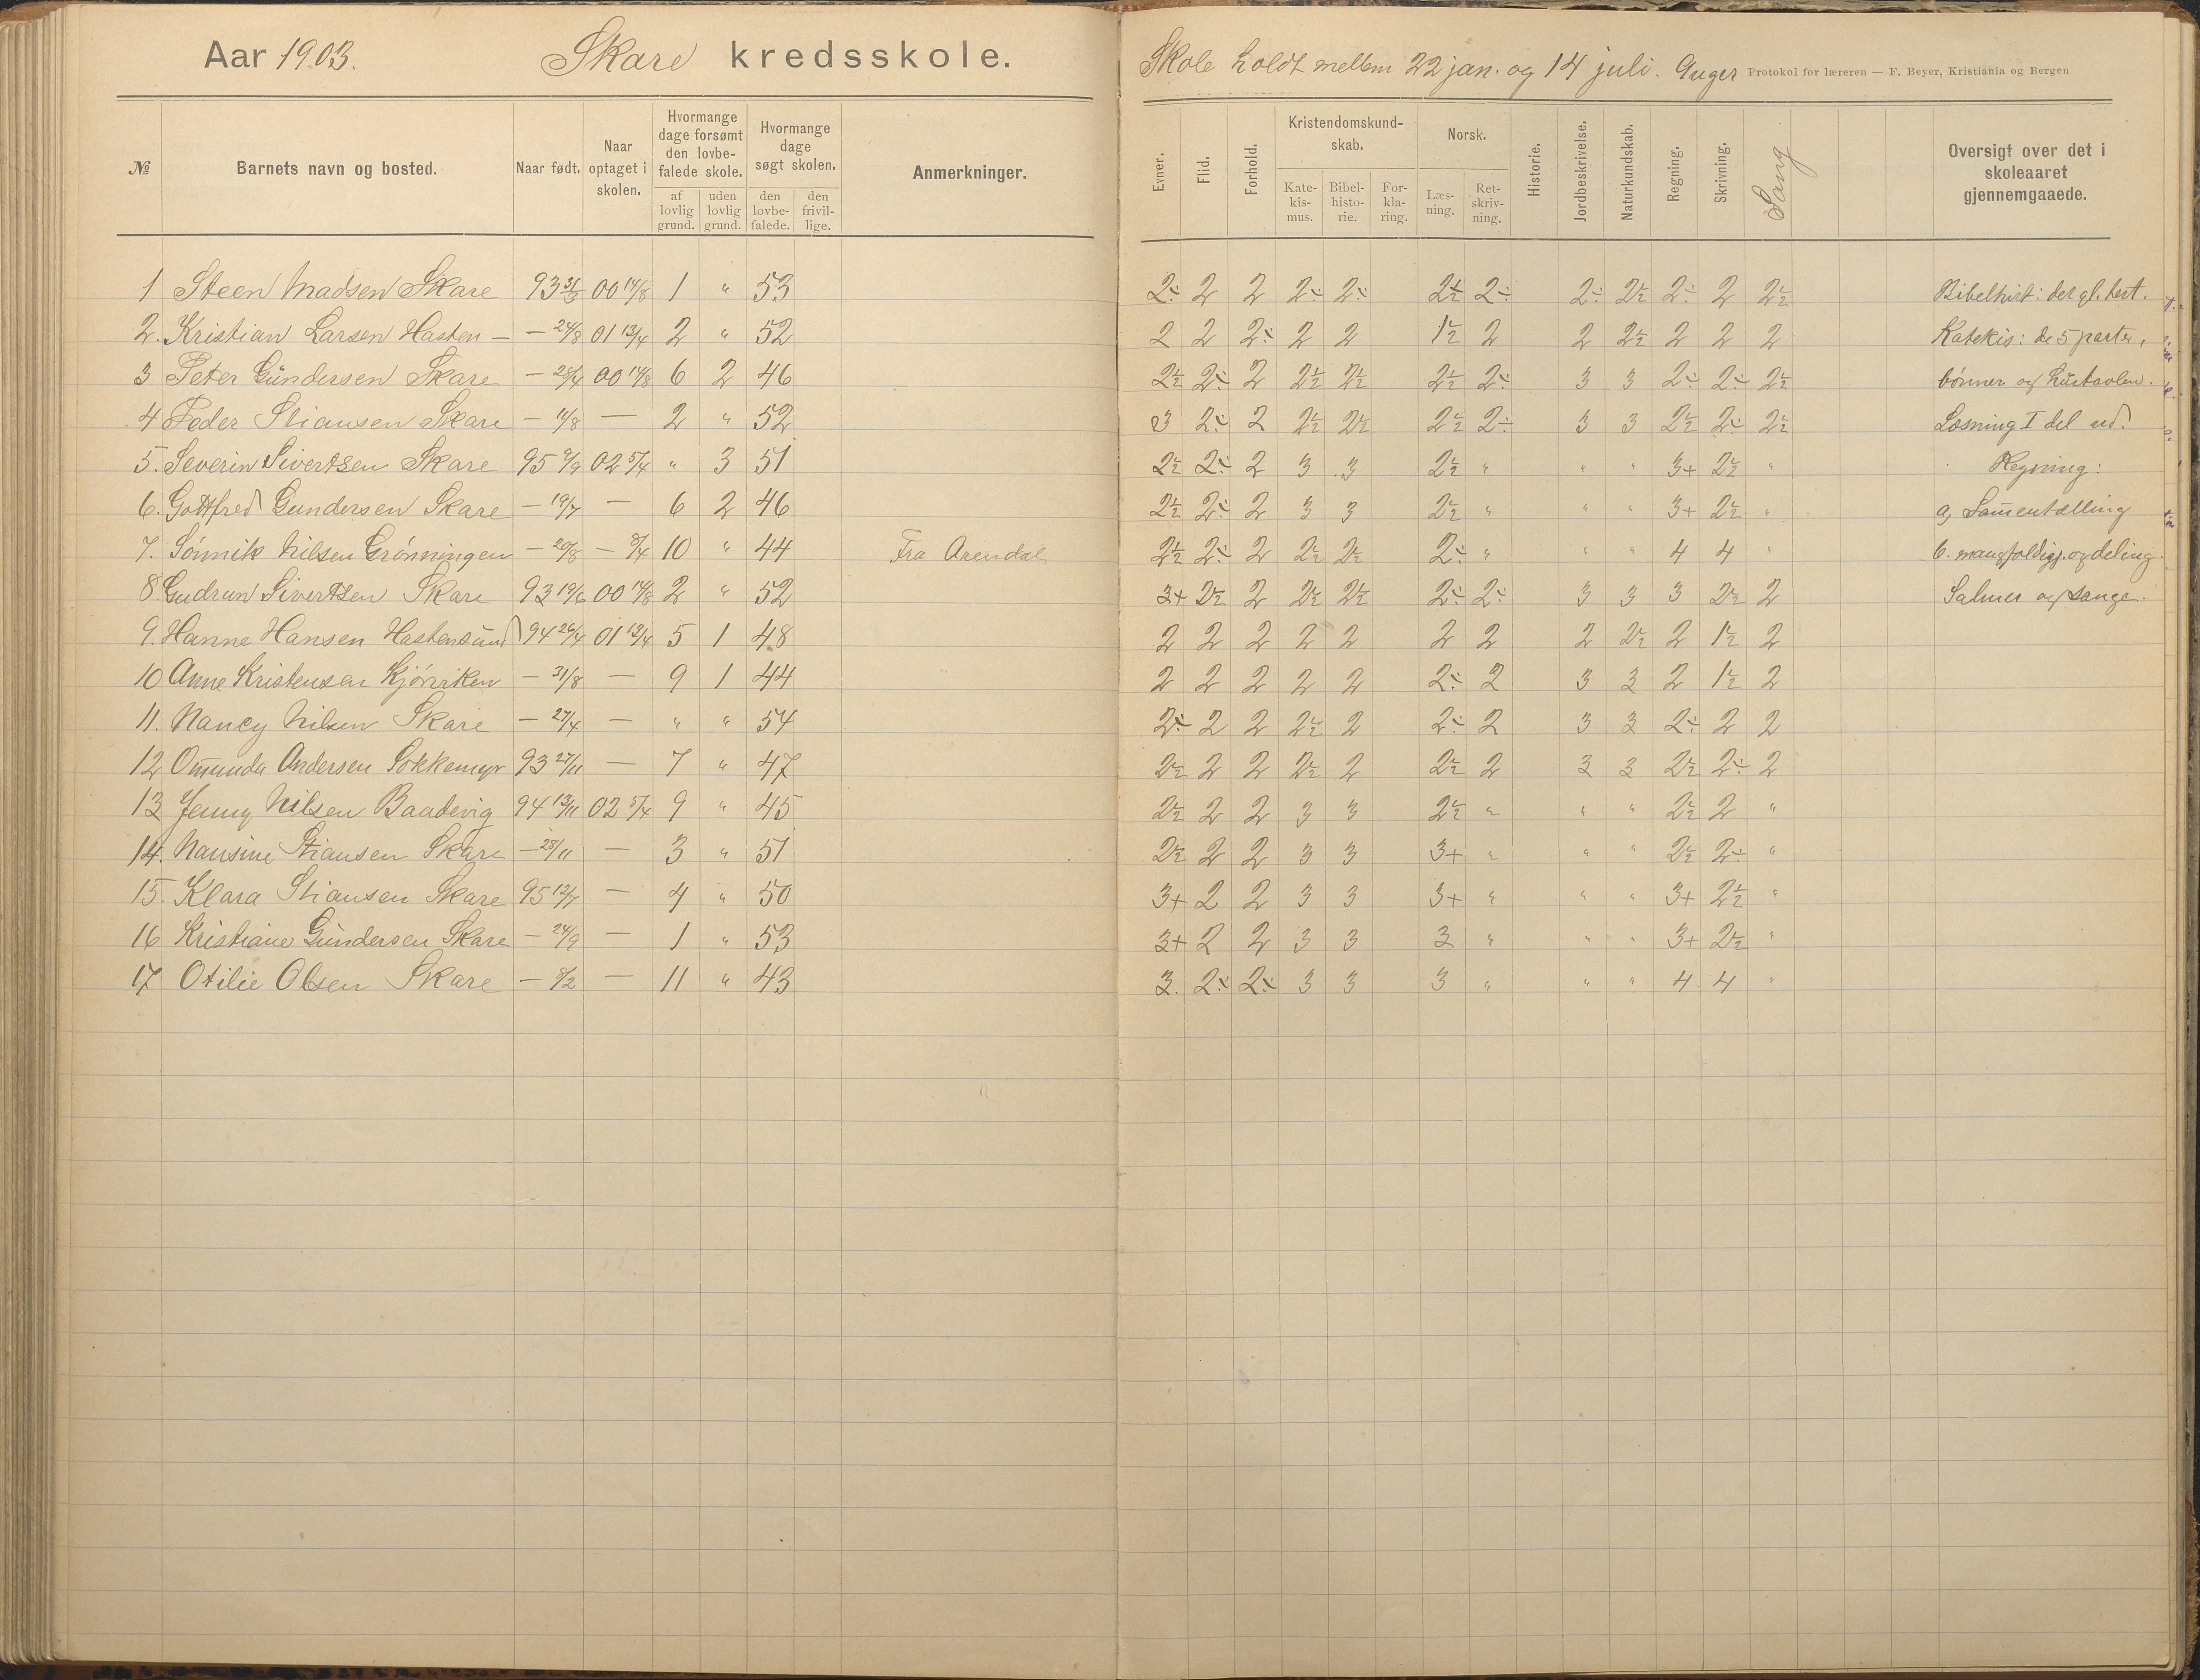 Aar 1903. Skare kredsskole.
№ Barnets navn og bosted. Naar født. Naar optaget i skolen. Hvormange dage forsømt den lovbefalede skole. af lovlig grund. uden lovlig grund. Hvormange dage søgt skolen. den lovbefalede. den frivillige. Anmerkninger.
1 Steen Madsen Skare 93 31/3 00 14/8 1 " 53
2. Kristian Larsen Hasten — — 24/8 01 13/4 2 " 52
3 Peter Gundersen Skare — 28/4 00 14/8 6 2 46
4 Peder Stiansen Skare — 11/8 — 2 " 52
5. Severin Sivertsen Skare 95 9/9 02 5/4 " 3 51
6. Gottfred Gundersen Skare — 19/7 — 6 2 46
7. Sónnik Nilsen Grónningen — 20/8 — 8/4 10 " 44 Fra Arendal
8 Gudrun Sivertsen Skare 93 19/6 00 14/8 2 " 52
9. Hanne Hansen Hastensund 94 26/4 01 13/4 5 1 48
10 Anne Kristensen Kjórviken — 31/8 — 9 1 44
11. Nancy Nilsen Skare — 27/4 — " " 54
12 Omunda Andersen Sokkemyr 93 27/11 — 7 " 47
13 Jenny Nilsen Baadevig 94 13/11 02 5/4 9 " 45
14. Nansine Stiansen Skare — 28/11 — 3 " 51
15. Klara Stiansen Skare 95 12/7 — 4 " 50
16 Kristiane Gundersen Skare — 24/9 — 1 " 53
17 Otilie Olsen Skare — 8/2 — 11 " 43
Skole holdt mellem 22 jan. og 14 juli. Protokol for læreren — F. Beyer, Kristiania og Bergen
Evner. Flid. Forhold. Kristendomskundskab. Katekismus. Bibelhistorie. Forklaring. Norsk. Læsning. Retskrivning. Historie. Jordbeskrivelse. Naturkundskab. Regning. Skrivning. Sang Oversigt over det i skoleaaret gjennemgaaede.
2÷ 2 2 2÷ 2÷ 2½ 2÷ 2÷ 2½ 2÷ 2 2½ Bibelhist: det gl. test.
2 2 2÷ 2 2 1½ 2 2 2½ 2 2 2 Katekis: de 5 parter,
2½ 2÷ 2 2½ 2½ 2½ 2÷ 3 3 2÷ 2÷ 2½ bónner og hustavlen.
3 2÷ 2 2½ 2½ 2½ 2÷ 3 3 2½ 2÷ 2½ Læsning I del ud.
2½ 2÷ 2 3 3 2½ " " " 3+ 2½ " Regning:
2½ 2÷ 2 3 3 2½ " " " 3+ 2½ " a, Samentælling
2½ 2÷ 2 2½ 2½ 2÷ " " " 4 4 " b. mangfoldigj. og deling
3+ 2½ 2 2½ 2½ 2÷ 2÷ 3 3 3 2½ 2 Salmer og sange.
2 2 2 2 2 2 2 2 2½ 2 1½ 2
2 2 2 2 2 2÷ 2 3 3 2 1½ 2
2÷ 2 2 2½ 2 2÷ 2 3 3 2÷ 2 2
2½ 2 2 2½ 2 2½ 2 3 3 2½ 2÷ 2
2½ 2 2 3 3 2½ " " " 2½ 2 "
2½ 2 2 3 3 3+ " " " 2½ 2÷ "
3+ 2 2 3 3 3+ " " " 3+ 2½ "
3+ 2 2 3 3 3 " " " 3+ 2½ "
3. 2÷ 2÷ 3 3 3 " " " 4 4 "